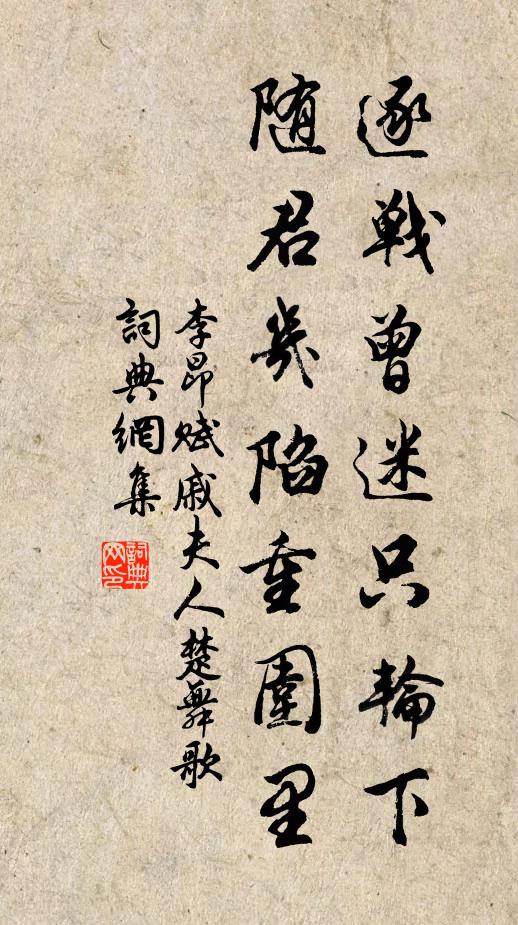 逐戰曾迷只輪下
随君幾陷重圍里
李昂赋戚夫人楚舞歌
詞典網集
詞典网印